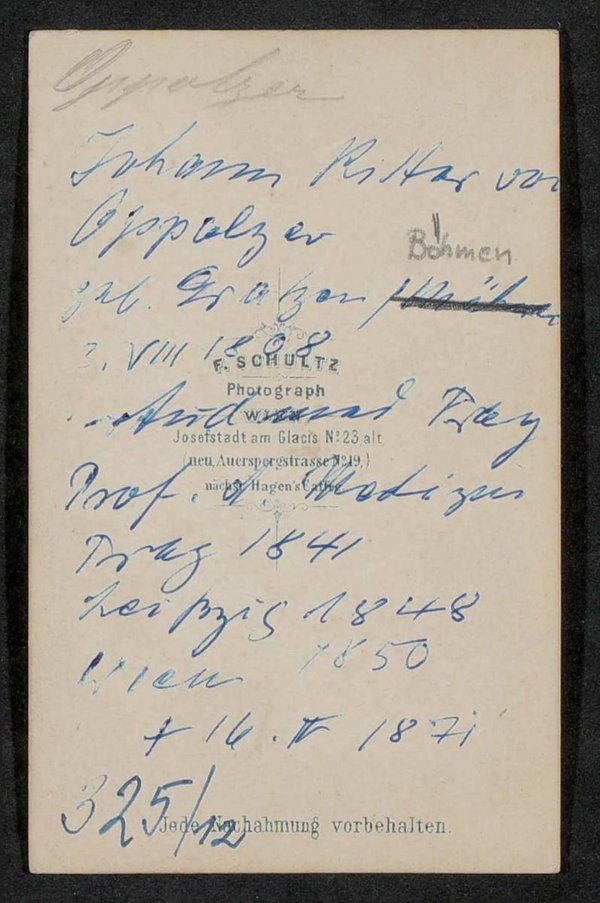 Oppolzer
Johann Ritter von
Oppolzer
Böhmen
geb. Gratzen /
VIII 1808
F. SCHULTZ
Photograph
WIEN
stud med Prag
Josefstadt am Glacis No. 23 alt
(neu, Auerspergstrasse No. 19,)
Prof. d. Medizin
nächst Hagen's Caffee
Prag 1841
Leipzig 1848
Wien 1850
† 16. IV 1871
325/12
Jede Nachahmung vorbehalten.